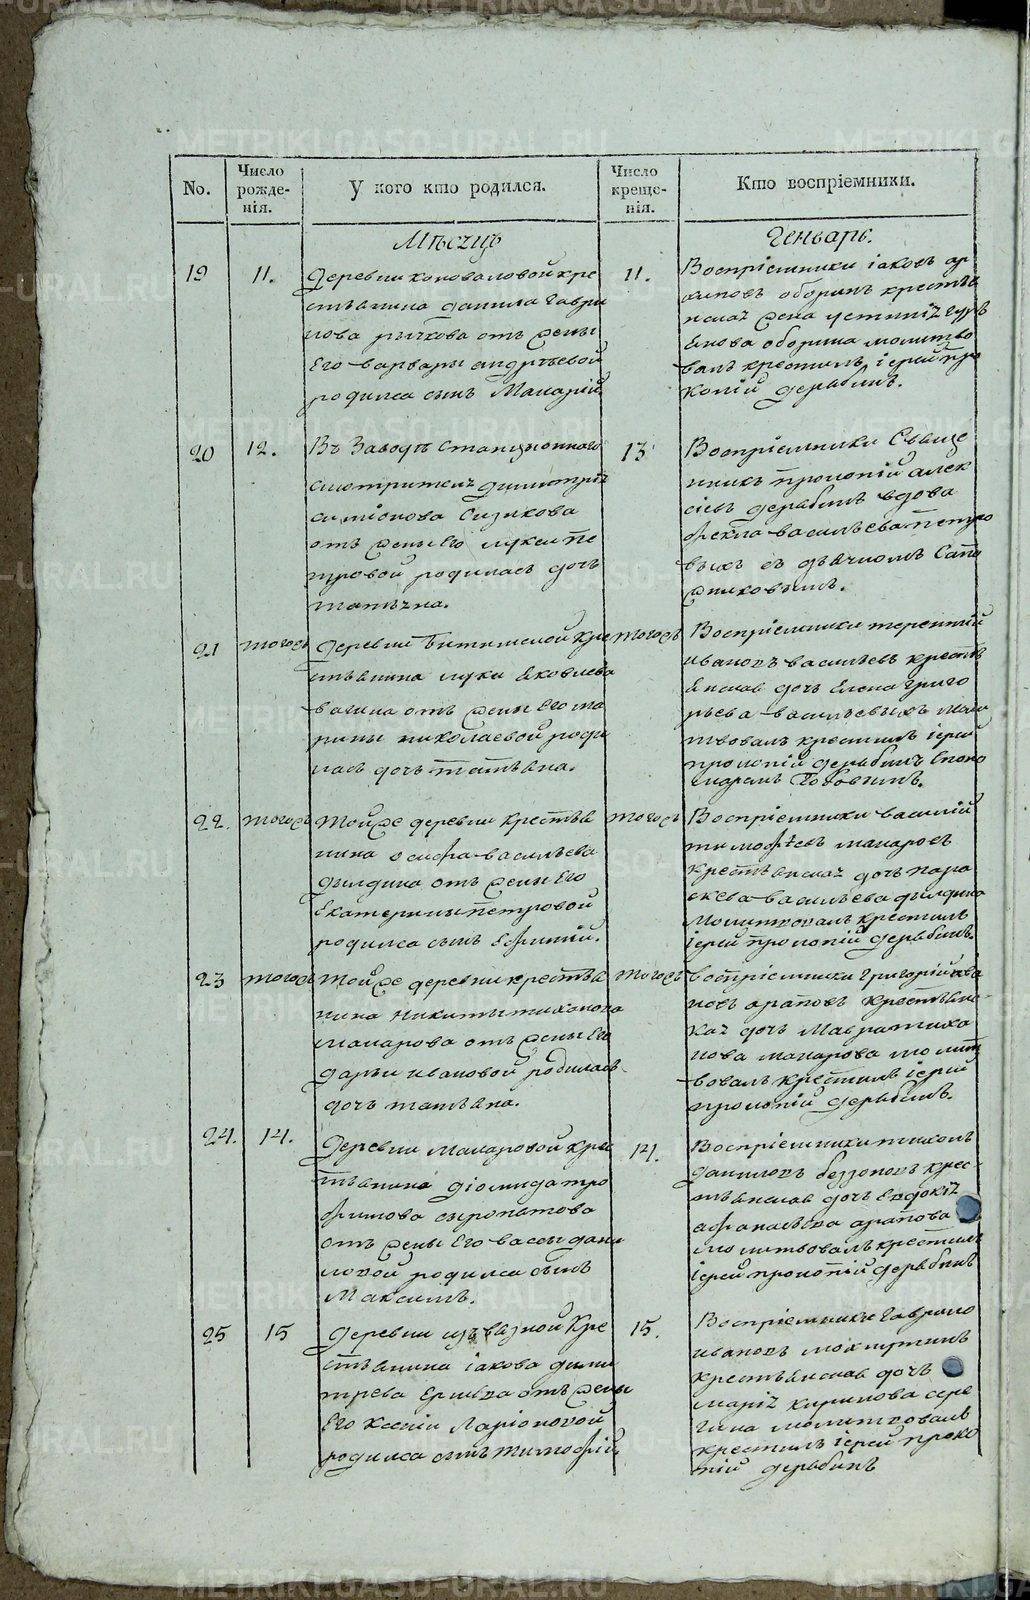 METRIKI.GASO-URAL.RU
No.
Число рожде-нія.
У кого кто родился.
Число креще-нія.
Кто воспріемники.
Мѣсяцъ
Генварь.
19
11.
деревни коноваловой кре
стьянина данила гаври
лова рычкова отъ жены
Его варвары андрѣевой
родился сынъ Макарій
11.
Воспріемники іаковъ ар
хиповъ оборинъ крестья
нская жена
оборина молитво
валъ крестилъ іерей про
копій дерябинъ.
20
12.
Въ Заводѣ Станціоннаго
смотрителя димитрія
симіонова Сизикова
отъ жены Его лукеи пе
тровой родилась дочь
татіяна.
13
Воспріемники Свяще
нникъ прокопій алек
сіевъ дерябинъ вдова
фекла васильева петро
выхъ съ дьячкомъ Сапо
жниковымъ.
21
тогожъ
деревни Битимской кре
стьянина луки яковлева
вагина отъ жены Его ма
рины николаевой роди
лась дочь татьяна.
тогожъ
Воспріемники терентій
ивановъ васильевъ кресть
янская дочь Елена григо
рьева васильевыхъ моли
твовалъ крестилъ іерей
прокопій дерябинъ Споно
маремъ Топоркинъ.
22.
тогожъ
тойже деревни крестья
нина осифа васильева
дылдина отъ жены Его
Екатерины петровой
родился сынъ Ефимій.
тогожъ
Воспріемники василій
тимофѣевъ макаровъ
крестьянская дочь пара
скева васильева дылдина
молитвовалъ крестилъ
іерей прокопій дерябинъ.
23
тогожъ
тойже деревни крестья
нина никиты тихонова
макарова отъ жены Его
дарьи ивановой родилась
дочь татьяна.
тогожъ
воспріемники григорій ива
новъ араповъ крестьянс
кая дочь Мавра тихо
нова макарова молит
вовалъ крестилъ іерей
прокопій дерябинъ.
24.
14.
деревни макаровой крес
тьянина діомида тро
фимова сыропятова
отъ жены Его васы дани
ловой родился сынъ
Максимъ.
14.
Воспріемники тихонъ
даниловъ беззоновъ крес
тьянская дочь Евдокія
афанасьева арапова
молитвовалъ крестилъ
іерей прокопій дерябинъ
25
15
деревни извѣзной кре
стьянина іакова дими
трева Ермыва отъ жены
Его ксеніи ларіоновой
родился сынъ тимофѣй
15.
Воспріемники гаврило
ивановъ мохиткинъ
крестьянская дочь
марія кирилова сере
гина молитвовалъ
крестилъ іерей проко
пій дерябинъ
METRIKI.GASO-URAL.RU